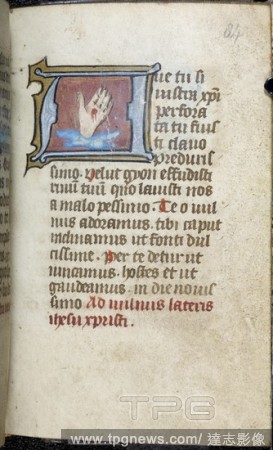 84
Aue tu si
nistra xpi
perfora
ta tu fuis
ti clauo
preduris
simo. Velut ypon effudisti
riuum tuum quo lauisti nos
a malo pessimo. Te o uul
nus adoramus. tibi caput
inclinamus ut fonti dul
cissime. Per te detur ut
uincamus. hostes et ut
gaudeamus. in die nouis
simo Ad uulnus lateris
ihesu xpristi.
TPG
www.tpgnews.com/達志影像